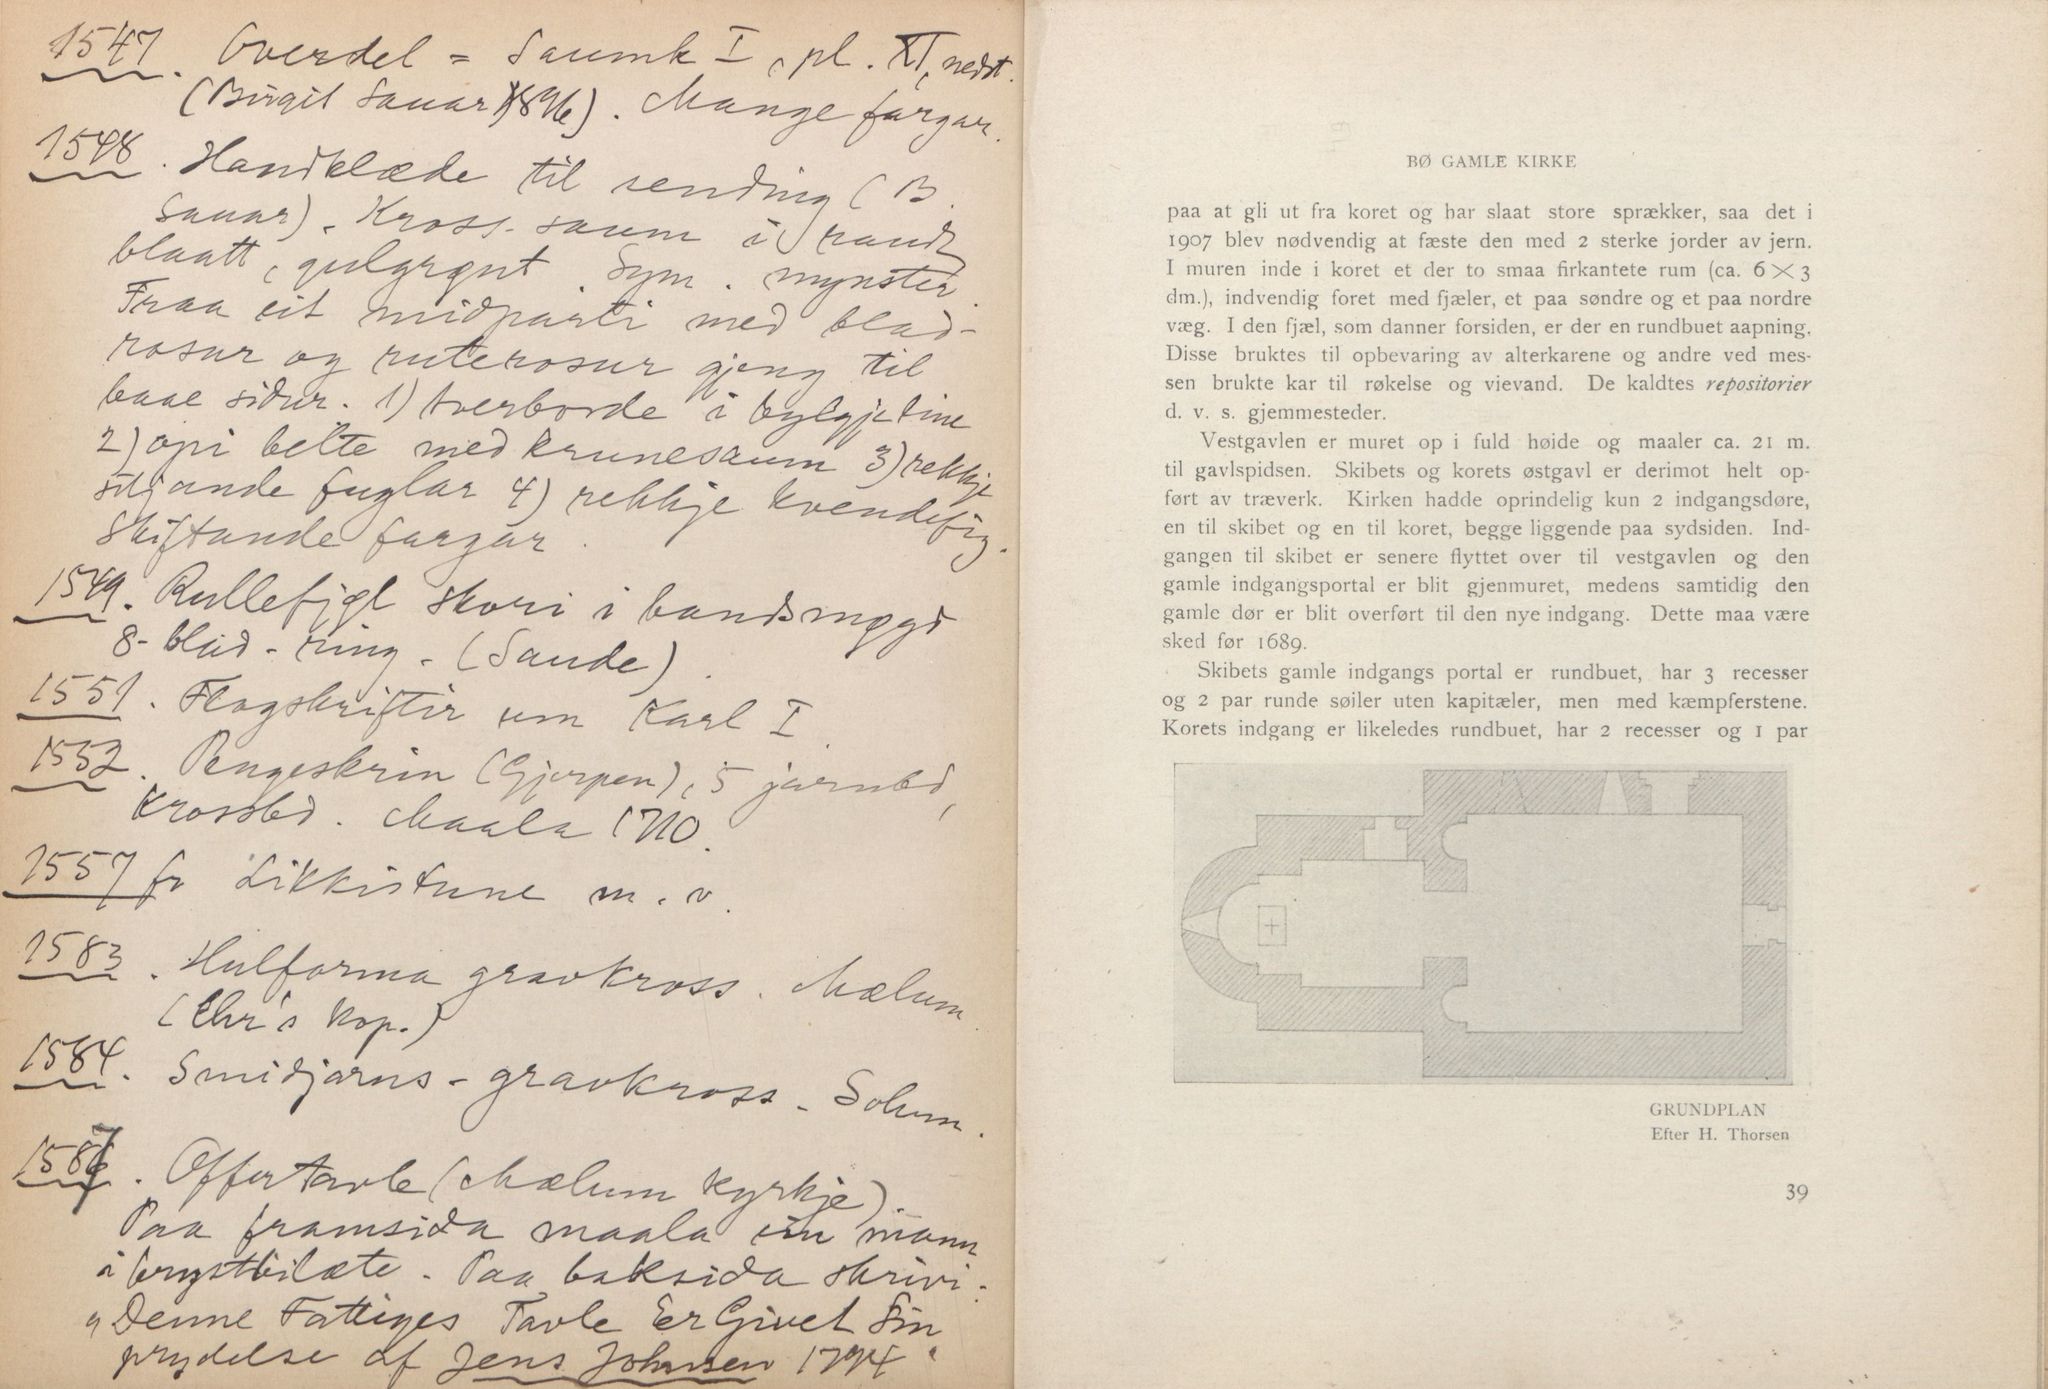 1547. Overdel = Saumk I, pl. XI, nedst.
(Birgit Sauar 1896). Mange fargar.
1548. Handklæde til sending (B.
Sauar). Kross-saum i raudt
blaatt, gulgrønt. Sym. mynster.
Fraa eit midparti med blad-
rosur og ruterosur gjeng til
baae sidur. 1) tverborde i bylgjeline
2) opi belte med krunesaum 3) rekkje
sitjande fuglar 4) rekkje kvendefig.
Skiftande fargar.
1549. Rullefjøl skori i handsmøgd
8-blad-ring. (Sande).
1551. Flogskriftir um Karl I.
1552. Pengeskrin (Gjerpen), 5 jarnbd,
krossbd. Maala 1710.
1557 fr Likkistune m. v.
1583. Hulforma gravkross. Mælum
(Chr's kop.)
1584. Smidjarns-gravkross. Solum.
1587. Offertavle (Mælum kyrkje)
Paa framsida maala ein mann
i brystbilæte. Paa baksida skrivi.
"Denne Fattiges Tavle Er Givet Sin
prydelse af Jens Johnsen 1794"
BØ GAMLE KIRKE
paa at gli ut fra koret og har slaat store sprækker, saa det i
1907 blev nødvendig at fæste den med 2 sterke jorder av jern.
I muren inde i koret et der to smaa firkantete rum (ca. 6 × 3
dm.), indvendig foret med fjæler, et paa søndre og et paa nordre
væg. I den fjæl, som danner forsiden, er der en rundbuet aapning.
Disse bruktes til opbevaring av alterkarene og andre ved mes-
sen brukte kar til røkelse og vievand. De kaldtes repositorier
d. v. s. gjemmesteder.
Vestgavlen er muret op i fuld høide og maaler ca. 21 m.
til gavlspidsen. Skibets og korets østgavl er derimot helt op-
ført av træverk. Kirken hadde oprindelig kun 2 indgangsdøre,
en til skibet og en til koret, begge liggende paa sydsiden. Ind-
gangen til skibet er senere flyttet over til vestgavlen og den
gamle indgangsportal er blit gjenmuret, medens samtidig den
gamle dør er blit overført til den nye indgang. Dette maa være
sked før 1689.
Skibets gamle indgangs portal er rundbuet, har 3 recesser
og 2 par runde søiler uten kapitæler, men med kæmpferstene.
Korets indgang er likeledes rundbuet, har 2 recesser og 1 par
GRUNDPLAN
Efter H. Thorsen
39